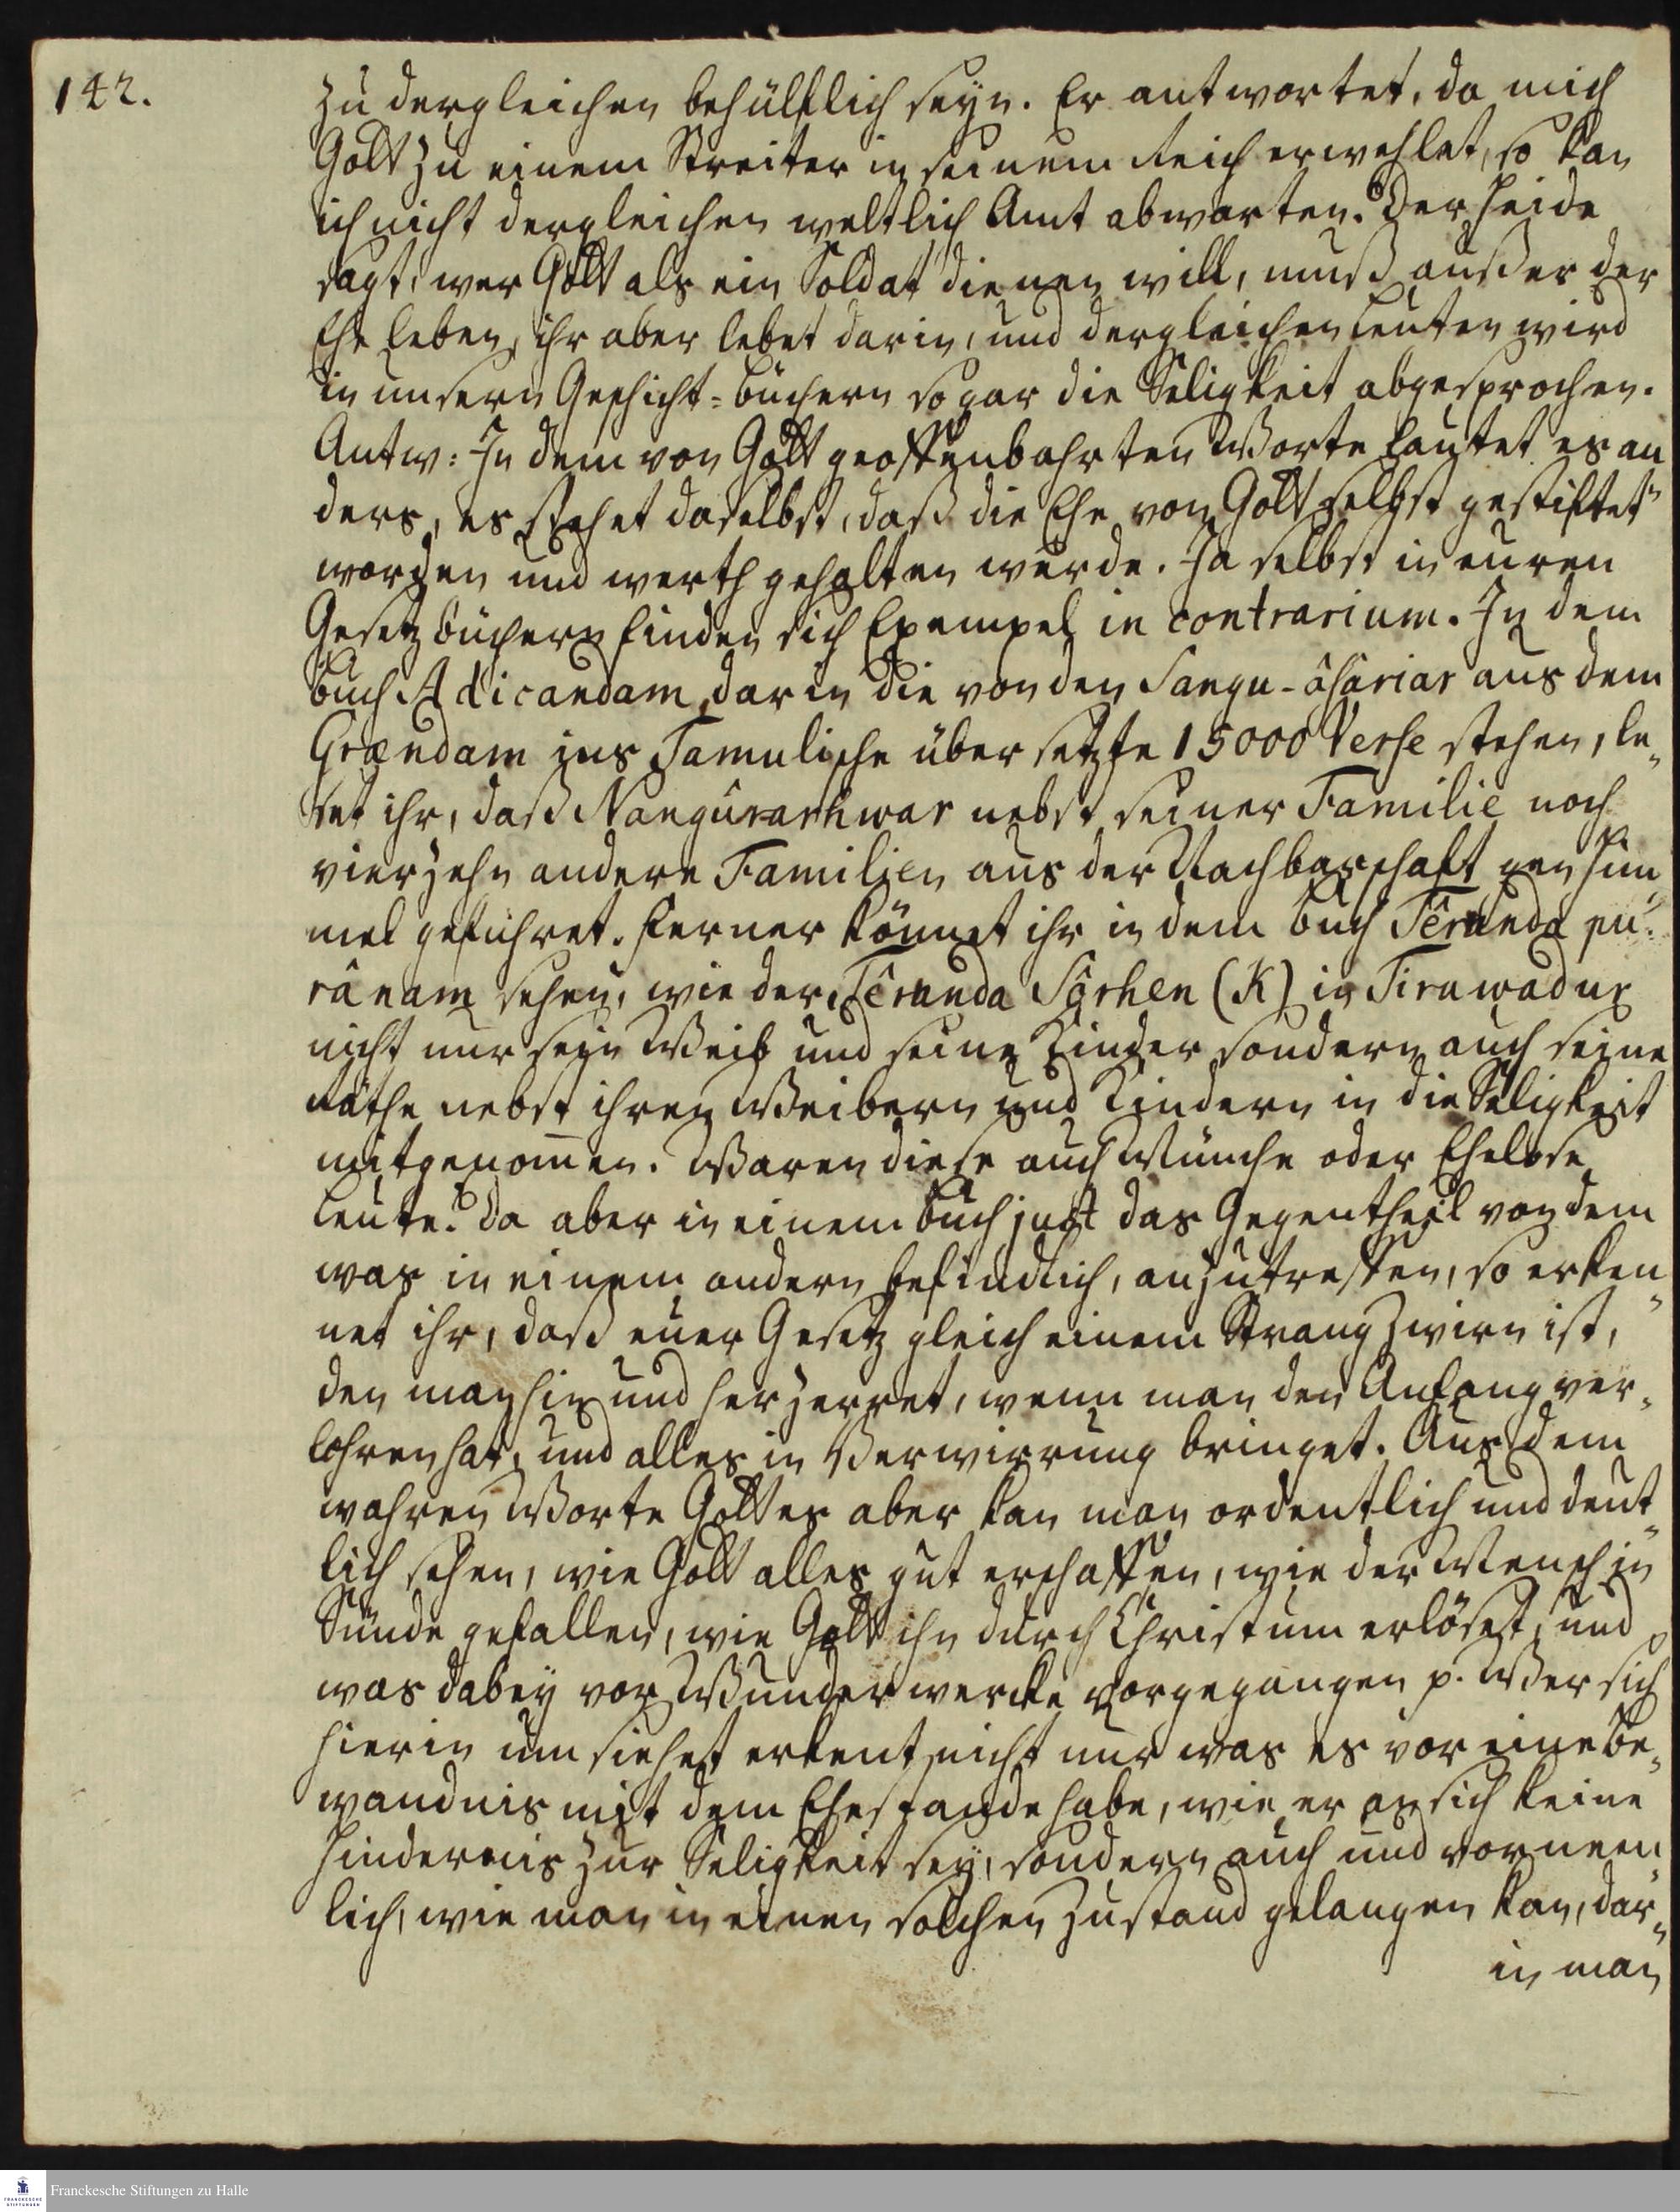 142.
zu dergleichen behülflich seyn. Er antwortet, da mich
Gott zu einem Streiter in seinem Reich erwehlet, so kan
ich nicht dergleichen weltlich Amt abwarten. Der Heide
sagt: wer Gott als ein Soldat dienen will, muß außer der
Ehe leben, ihr aber lebet darin, und dergleichen Leuten wird
in unsern Geschicht-büchern sogar die Seligkeit abgesprochen.
Antw: In dem von Gott geoffenbahrten Worte lautet es an
ders, es stehet daselbst, daß die Ehe von Gott selbst gestiftet
worden und werth gehalten werde. Ja selbst in euren
Gesetzbüchern finden sich Exempel in contrarium. In dem
buch Adicandam, darin die von den Sangu-âsâriar aus dem
Grændam ins Tamulische übersetzte 15000 Verse stehen, le-
set ihr, daß Nangurarhwar nebst seiner Familie noch
vierzehn andere Familien aus der Nachbarschaft gen Him-
mel geführet. Ferner könnet ihr in dem buch Têrunda pu-
rânam sehen, wie der Têrunda Sôrhen (K) in Tirawadur
nicht nur sein Weib und seine Kinder sondern auch seine
Räthe nebst ihren Weibern und Kindern in die Seligkeit
mitgenom̄en. Waren diese auch Münche oder Ehelose
Leute? Da aber in einem buch just das Gegentheil von dem
was in einem andern befindlich, anzutreffen, so erken-
net ihr, daß euer Gesetz gleich einem Strang Zwirn ist,
den man hin und her zerret, wenn man den Anfang ver-
lohren hat, und alles in Verwirrung bringet. Aus dem
wahren Worte Gottes aber kan man ordentlich und deut-
lich sehen, wie Gott alles gut erschaffen, wie der Mensch in
Sünde gefallen, wie Gott ihn durch Christum erlöset, und
was dabey vor Wunderwercke vorgegangen p. Wer sich
hierin umsiehet erkent nicht nur was es vor eine be-
wandnis mit dem Ehestande habe, wie er an sich keine
Hindernis zur Seligkeit sey, sondern auch und vornem-
lich, wie man in einen solchen Zustand gelangen kan, dar-
in man
Franckesche Stiftungen zu Halle
FRANCKESCHE
STIFTUNGEN